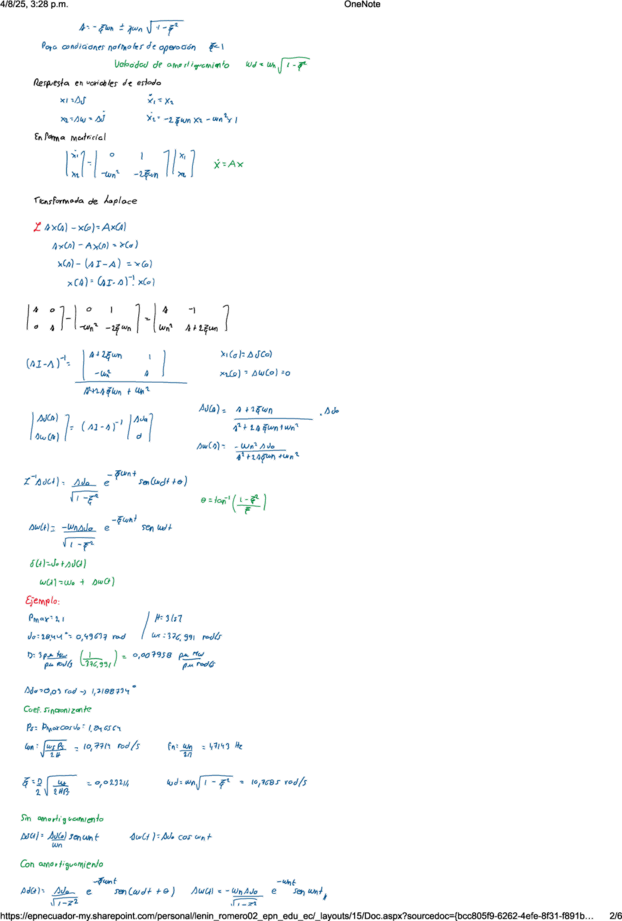 4/8/25, 3:28 p.m. OneNote
s = -ξωn ± jωn √(1-ξ²)
Para condiciones normales de operación ξ<1
Velocidad de amortiguamiento ωd = ωn √(1-ξ²)
Respuesta en variables de estado
x1 = Δδ ẋ1 = x2
x2 = Δω = Δδ̇ ẋ2 = -2ξωn x2 - ωn² x1
En forma matricial
[ẋ1] = [0 1] [x1]
[ẋ2] [-ωn² -2ξωn] [x2] ẋ = Ax
Transformada de Laplace
ℒ sx(s) - x(0) = Ax(s)
sx(s) - Ax(s) = x(0)
x(s) - (sI-A) = x(0)
x(s) = (sI-A)⁻¹ · x(0)
[s 0] - [0 1] = [s -1]
[0 s] [-ωn² -2ξωn] [ωn² s+2ξωn]
(sI-A)⁻¹ = [s+2ξωn 1] x1(0) = Δδ(0)
[-ωn² s] x2(0) = Δω(0) = 0
s²+2sξωn + ωn²
[Δδ(s)] = (sI-A)⁻¹ [Δδ0]
[Δω(s)] [0]
Δδ(s) = s+2ξωn / s²+2sξωn+ωn² · Δδ0
Δω(s) = -ωn² Δδ0 / s²+2sξωn+ωn²
ℒ⁻¹ Δδ(t) = Δδ0 / √(1-ξ²) e^(-ξωnt) sen(ωdt+θ)
θ = tan⁻¹ (1-ξ² / ξ)
Δω(t) = -ωnΔδ0 / √(1-ξ²) e^(-ξωnt) sen ωdt
δ(t) = δ0 + Δδ(t)
ω(t) = ω0 + Δω(t)
Ejemplo:
Pmax = 2,1 H = 3,27
δ0 = 28,44° = 0,49637 rad ωs = 376,991 rad/s
(1/376,991) = 0,007958
Δδ0 = 0,03 rad → 1,7188734°
Coef. sincronizante
Ps = Pmax cos δ0 = 1,846564
ωn = √(ωs Ps / 2H) = 10,7714 rad/s fn = ωn/2π = 1,7143 Hz
ξ = D/2 √(ωs / 2HPs) = 0,023214 ωd = ωn √(1-ξ²) = 10,7685 rad/s
Sin amortiguamiento
Δδ(t) = Δδ(0)/ωn sen ωnt Δω(t) = Δδ0 cos ωnt
Con amortiguamiento
Δδ(t) = Δδ0 / √(1-ξ²) e^(-ξωnt) sen(ωdt + θ) Δω(t) = -ωn Δδ0 / √(1-ξ²) e^(-ωnt) sen ωnt
https://epnecuador-my.sharepoint.com/personal/lenin_romero02_epn_edu_ec/_layouts/15/Doc.aspx?sourcedoc={bcc805f9-6262-4efe-8f31-f891b… 2/6